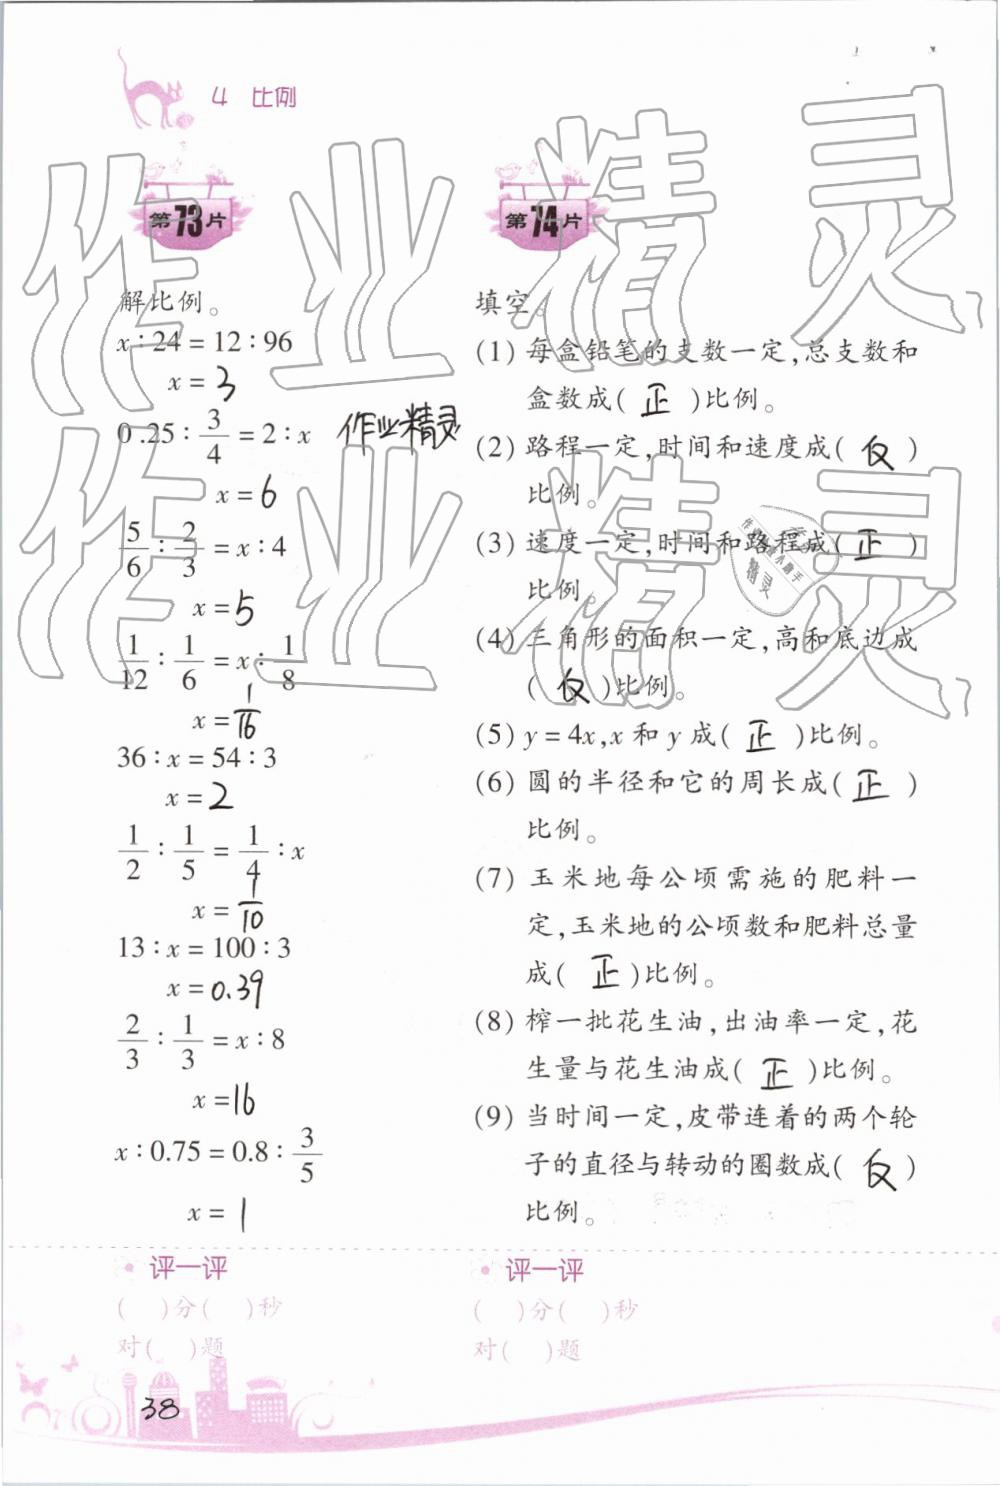 4 比例
第73片
解比例。
x∶24=12∶96
x=3
0.25∶3/4=2∶x
作业精灵
x=6
5/6∶2/3=x∶4
x=5
1/12∶1/6=x∶1/8
x=1/16
36∶x=54∶3
x=2
1/2∶1/5=1/4∶x
x=1/10
13∶x=100∶3
x=0.39
2/3∶1/3=x∶8
x=16
x∶0.75=0.8∶3/5
x=1
评一评
( )分( )秒
对( )题
第74片
填空。
(1) 每盒铅笔的支数一定,总支数和
盒数成( 正 )比例。
(2) 路程一定,时间和速度成( 反 )
比例。
(3) 速度一定,时间和路程成( 正 )
比例。
(4) 三角形的面积一定,高和底边成
( 反 )比例。
(5) y=4x,x和y成( 正 )比例。
(6) 圆的半径和它的周长成( 正 )
比例。
(7) 玉米地每公顷需施的肥料一
定,玉米地的公顷数和肥料总量
成( 正 )比例。
(8) 榨一批花生油,出油率一定,花
生量与花生油成( 正 )比例。
(9) 当时间一定,皮带连着的两个轮
子的直径与转动的圈数成( 反 )
比例。
评一评
( )分( )秒
对( )题
38
作业精灵
作业精灵